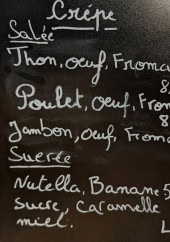 Crêpe
Salée
Thon, oeuf, Froma
8
Poulet, oeuf, From
8
Jambon, oeuf, Froma
Sucrée
Nutella, Banane 5
sucre, Caramelle
miel.